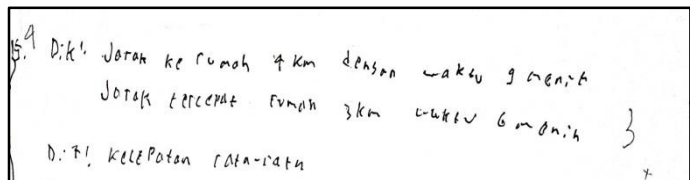 15. a Dik! Jarak ke rumah 4 km dengan waktu 9 menit
Jarak tercepat rumah 3km waktu 6 menit }
Dit! kecepatan rata-rata